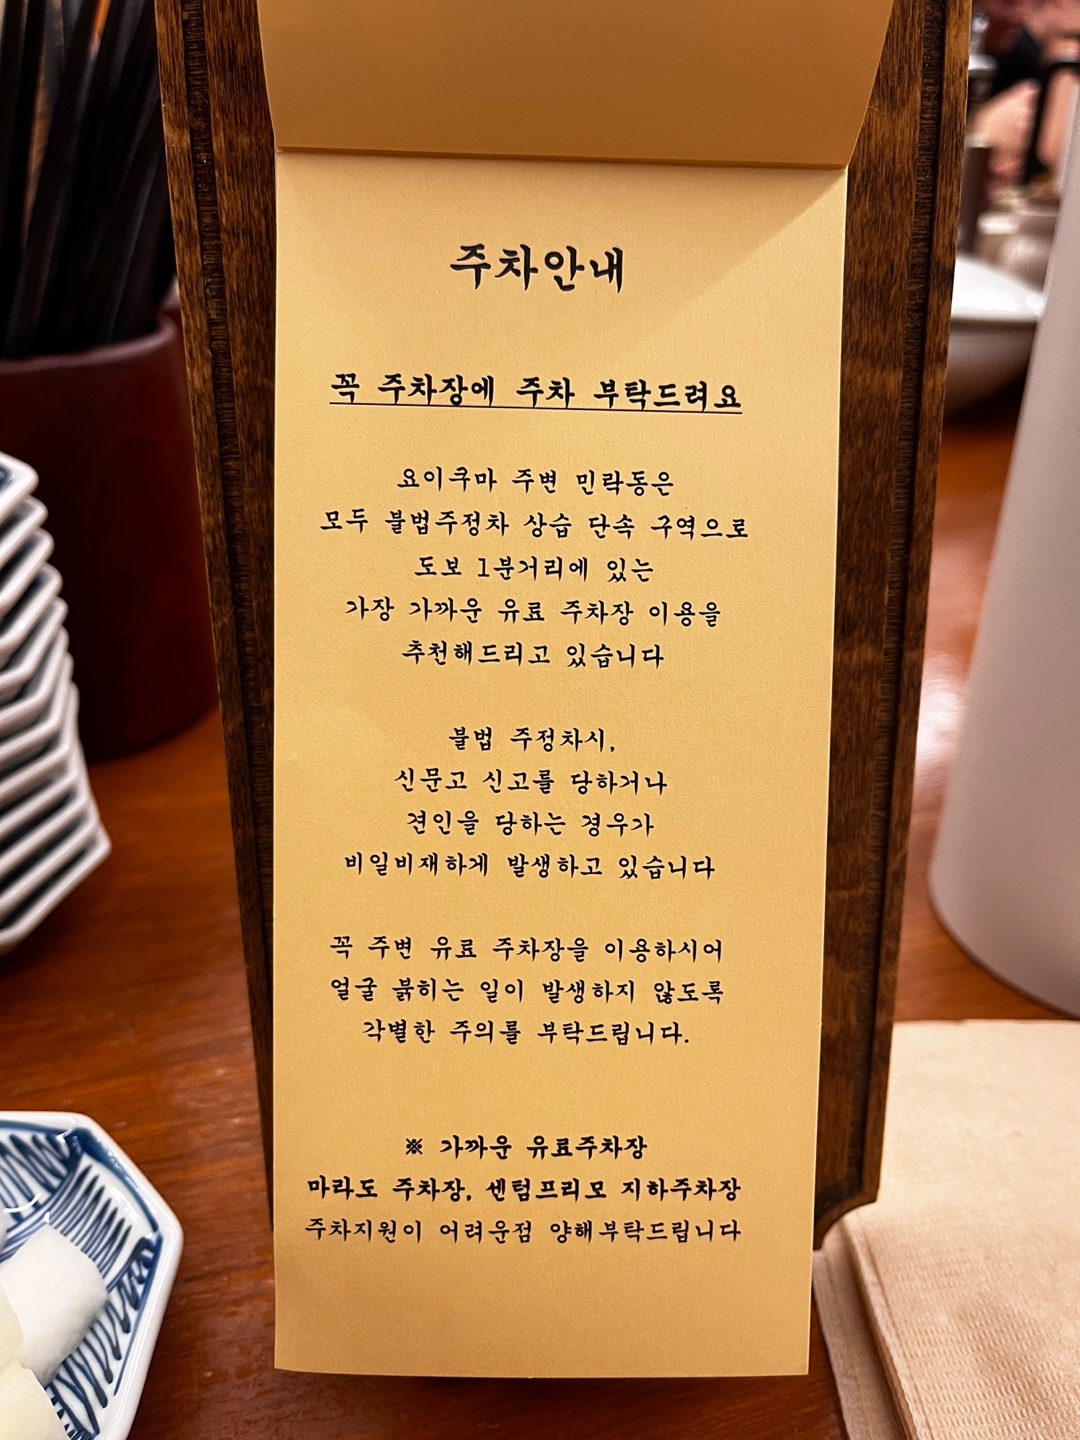 주차안내
꼭 주차장에 주차 부탁드려요
요이쿠마 주변 민락동은
모두 불법주정차 상습 단속 구역으로
도보 1분거리에 있는
가장 가까운 유료 주차장 이용을
추천해드리고 있습니다
불법 주정차시,
신문고 신고를 당하거나
견인을 당하는 경우가
비일비재하게 발생하고 있습니다
꼭 주변 유료 주차장을 이용하시어
얼굴 붉히는 일이 발생하지 않도록
각별한 주의를 부탁드립니다.
※ 가까운 유료주차장
마라도 주차장, 센텀프리모 지하주차장
주차지원이 어려운점 양해부탁드립니다